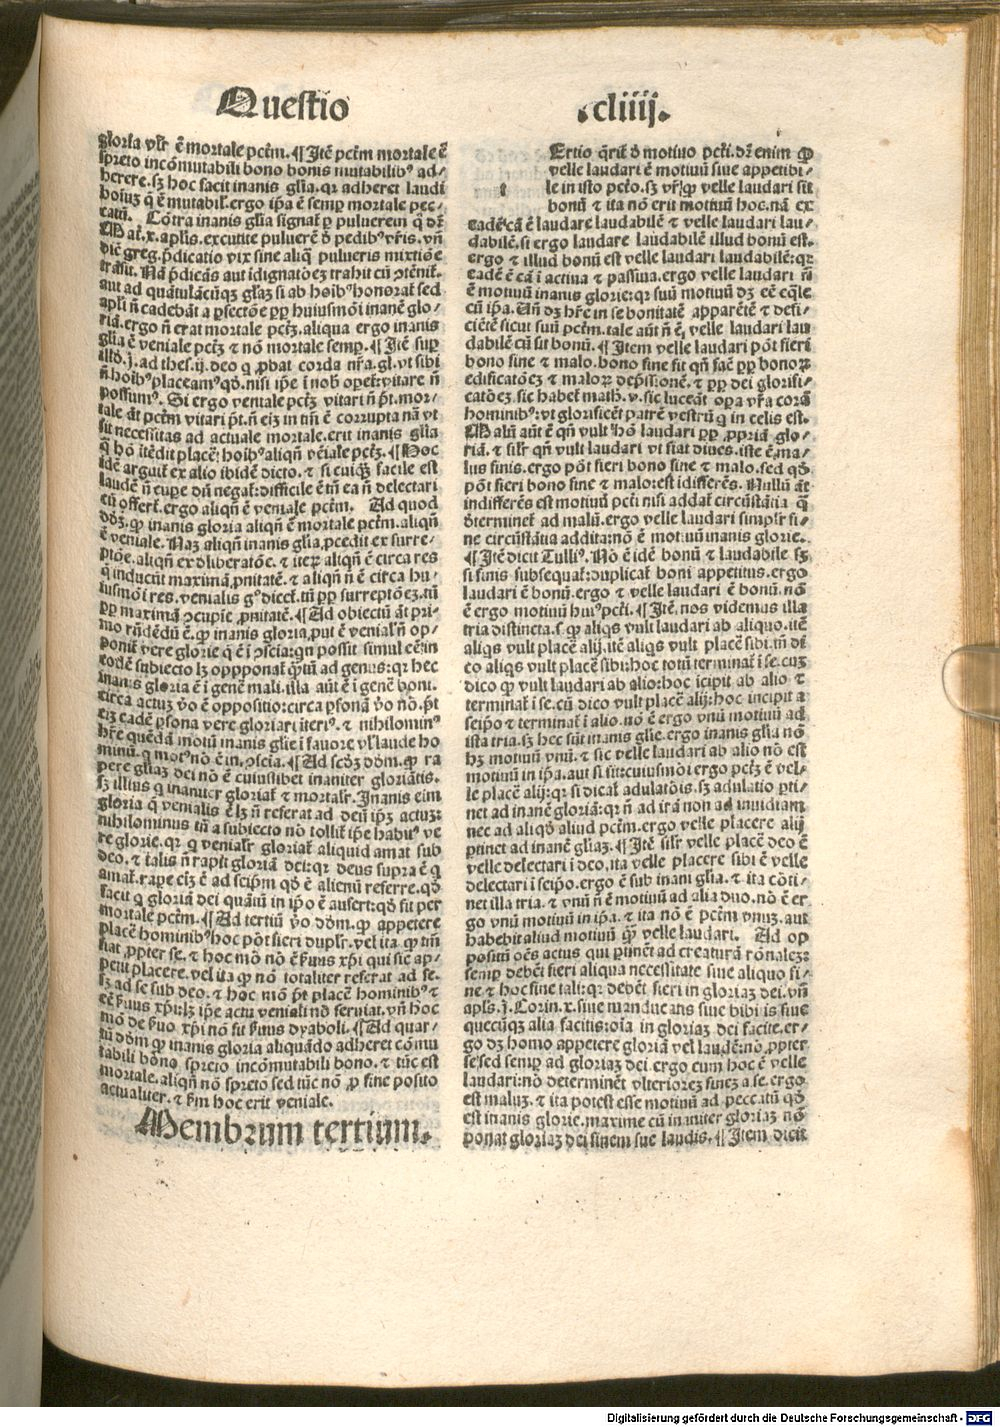 Questio .cliiij.
gloria vlr̄ ē mortale pctm̄. ¶ Itē pctm̄ mortale ē
spreto incōmutabili bono bonis mutabilibꝰ ad/
herere. sꝫ hoc facit inanis gl̄ia. qr adheret laudi
hoīuꝫ q̄ ē mutabil'. ergo ip̄a ē semp mortale pec/
catū. Cōtra inanis gl̄ia signat̄ p puluerem q̄ dr̄
Mat̄. x. aplis. excutite puluerē ð pedibꝰ vr̄is. vn̄
dic̄ greg. p̄dicatio vix sine aliq̄ pulueris mixtiōe
trāsit. Nā p̄dicās aut idignatōeꝫ trahit cū ↄtēnit̄.
aut ad quātulācūqꝫ gl̄iaꝫ si ab hoībꝰ honorat̄ sed
apl̄i n̄ cadebāt a pfectōe ꝓp huiusmōi inanē glo/
riā. ergo n̄ erat mortale pctꝫ. aliqua ergo inanis
gl̄ia ē veniale pctꝫ ⁊ nō mortale semp. ¶ Itē sup
illð. j. ad thes. ij. deo q̄ ꝓbat corda nr̄a. gl. vt sibi
n̄ hoībꝰ placeamꝰ qð. nisi ip̄e i nob̄ opet̄ vitare n̄
possumꝰ. Si ergo veniale pctꝫ vitari n̄ pt̄. mor/
tale āt pctm̄ vitari pt̄. n̄ eiꝫ in tm̄ ē corrupta nā vt
sit necessitas ad actuale mortale. erit inanis gl̄ia
q̄ hō itēdit placē hoībꝰ aliqn̄ vēiale pctꝫ. ¶ Hoc
idē arguit̄ ex alio ibidē dicto. ⁊ si cuiqꝫ facile est
laudē n̄ cupe dū negat̄: difficile ē tn̄ ea n̄ delectari
cū offert̄. ergo aliqn̄ ē veniale pctm̄. Ad quod
dōꝫ. ꝙ inanis gloria aliqn̄ ē mortale pctm̄. aliqn̄
ē veniale. Naꝫ aliqn̄ inanis gl̄ia ꝓcedit ex surre/
ptōe. aliqn̄ ex dliberatōe. ⁊ iteꝝ aliqn̄ ē circa res
q̄ inducūt maximā ꝓnitatē. ⁊ aliqn̄ n̄ ē circa hu/
iusmōi res. venialis gꝰ dicet̄. tū ꝓp surreptōeꝫ. tū
ꝓp maximā ↄcupīe ꝓnitatē. ¶ Ad obiectū āt pri/
mo rn̄dēdū ē. ꝙ inanis gloria, put ē venial' n̄ op/
ponit̄ vere glorie q̄ ē i ↄscīa: qn̄ possit simul cē in
eodē subiecto lꝫ oppponat̄ q̄ntū ad genus: qr hec
inanis gloria ē i genē mali. illa aūt ē i genē boni.
circa actuꝫ v̄o ē oppositio: circa psonā v̄o nō. pt̄
eiꝫ eadē psona vere gloriari iteriꝰ. ⁊ nihilominꝰ
hr̄e quēdā motū inanis gl̄ie i fauore vl' laude ho
minū. q̄ motꝰ nō ē in ↄscīa. ¶ Ad scðꝫ dōm. ꝙ ra
pere gl̄iaꝫ dei nō ē cuiuslibet inaniter gloriātis.
sꝫ illius q̄ inaniter gloriat̄ ⁊ mortalr̄. Inanis eim
gloria q̄ venialis ē lꝫ n̄ referat ad deū ip̄ꝫ actuꝫ:
nihilominus tn̄ a subiecto nō tollit̄ ip̄e habitꝰ ve
re glorie. qr q̄ venialr̄ gloriat̄ aliquid amat sub
deo. ⁊ talis n̄ rapit gloriā dei: qr deus supra ē q̄
amat̄. rape eiꝫ ē ad seip̄m qð ē alienū referre. qð
facit q̄ gloriā dei quātū in ip̄o ē aufert: qð fit per
mortale pctm̄. ¶ Ad tertiū v̄o dōm. ꝙ appetere
placē hominibꝰ hoc pōt fieri duplr̄. vel ita. ꝙ tm̄
fiat ꝓpter se. ⁊ hoc mō nō ē s̄uus xp̄i qui sic ap/
petit placere. vel ita ꝙ nō totaliter referat ad se.
sꝫ ad se sub deo. ⁊ hoc mō pt̄ placē hominibꝰ ⁊
eē s̄uus xp̄i: lꝫ ip̄e actu veniali nō seruiat. vn̄ hoc
mō de s̄uo xp̄i nō fit s̄uus dyaboli. ¶ Ad quar/
tū dōm ꝙ inanis gloria aliquādo adheret cōmu
tabili bono spreto incōmutabili bono. ⁊ tūc est
mortale. aliqn̄ nō spreto sed tūc nō ꝓ fine posito
actualiter. ⁊ s̄m hoc erit veniale.
Membrum tertium.
t
Ertio q̄rit̄ ð motiuo pcti. dr̄ enim ꝙ
velle laudari ē motiuū siue appetibi/
le in isto pctō. sꝫ vr̄ ꝙ velle laudari sit
bonū ⁊ ita nō erit motiuū hoc. nā ex
eadē cā ē laudare laudabilē ⁊ velle laudari lau/
dabilē. si ergo laudare laudabilē illud bonū est.
ergo ⁊ illud bonū est velle laudari laudabilē: qr
eadē ē cā i actiua ⁊ passiua. ergo velle laudari n̄
ē motiuū inanis glorie: qr suū motiuū dꝫ eē eq̄le
cū ip̄a. Un̄ dꝫ hr̄e in se bonitatē apparētē ⁊ defi/
ciētē sicut suū pctm̄. tale aūt n̄ ē, velle laudari lau
dabilē cū sit bonū. ¶ Item velle laudari pōt fieri
bono fine ⁊ malo. bono fine fit qn̄ fac̄ ꝓp bonoꝝ
edificatōeꝫ ⁊ maloꝝ dep̄ssionē. ⁊ ꝓp dei glorifi/
catōeꝫ. sic habet̄ math. v. sic luceāt opa vr̄a corā
hominibꝰ: vt glorificēt patrē vestrū q̄ in celis est.
Malū aūt ē qn̄ vult hō laudari ꝓp ꝓpriā glo/
riā. ⁊ silr̄ qn̄ vult laudari vt fiat diues. iste ē ma/
lus finis. ergo pōt fieri bono fine ⁊ malo. sed qð
pōt fieri bono fine ⁊ malo: est idifferēs. Nullū āt
indifferēs est motiuū pcti nisi addat̄ circūstātia q̄
ðterminet̄ ad malū. ergo velle laudari simplr̄ si/
ne circūstātia addita: nō ē motiuū inanis glorie.
¶ Itē dicit Tulliꝰ. Nō ē idē bonū ⁊ laudabile sꝫ
si finis subsequat̄: duplicat̄ boni appetitus. ergo
laudari ē bonū. ergo ⁊ velle laudari ē bonū. nō
ē ergo motiuū huiꝰ pcti. ¶ Itē, nos videmus illa
tria distincta. s. ꝙ aliqs vult laudari ab aliquo. itē
aliqs vult placē alij. itē aliqs vult placē sibi. tn̄ de
eo aliqs vult placē sibi: hoc totū terminat̄ i se. cuꝫ
dico ꝙ vult laudari ab alio: hoc icipit ab alio ⁊
terminat̄ i se. cū dico vult placē alij: hoc incipit a
seip̄o ⁊ terminat̄ i alio. nō ē ergo vnū motiuū ad
ista tria. sꝫ hec sūt inanis gl̄ie. ergo inanis gl̄ia nō
hꝫ motiuū vnū. ⁊ sic velle laudari ab alio nō est
motiuū in ip̄a. aut si sit: cuiusmōi ergo pctꝫ ē vel/
le placē alij: qr si dicat̄ adulatōis. sꝫ adulatio ꝑti/
net ad inanē gloriā: qr n̄ ad irā non ad inuidiam
nec ad aliqð aliud pctm̄. ergo velle placere alij
ꝑtinet ad inanē gl̄iaꝫ. ¶ Itē silr̄ velle placē deo ē
velle delectari i deo, ita velle placere sibi ē velle
delectari i seip̄o. ergo ē sub inani gl̄ia. ⁊ ita cōti/
net illa tria. ⁊ vnū n̄ ē motiuū ad alia duo. nō ē er
go vnū motiuū in ip̄a. ⁊ ita nō ē pctm̄ vnuꝫ. aut
habebit aliud motiuū q̄ velle laudari. Ad op
positū oēs actus qui ꝑtinēt ad creaturā rōnalēꝫ:
semp debēt fieri aliqua necessitate siue aliquo fi/
ne ⁊ hoc fine tali: qr debēt fieri in gloriaꝫ dei. vn̄
apls. j. Corin. x. siue manducans siue bibis siue
quecūqꝫ alia facitis: oīa in gloriaꝫ dei facite. er/
go dꝫ homo appetere gloriā vel laudē: nō ꝓpter
se. sed semp ad gloriaꝫ dei. ergo cum hoc ē velle
laudari: nō determinēt vlteriorez finez a se. ergo
est maluꝫ. ⁊ ita potest esse motiuū ad peccatū qð
est inanis glorie. maxime cū inaniter gloriaꝫ nō
ponat gloriaꝫ dei finem sue laudis. ¶ Item dicit
Digitalisierung gefördert durch die Deutsche Forschungsgemeinschaft - DFG